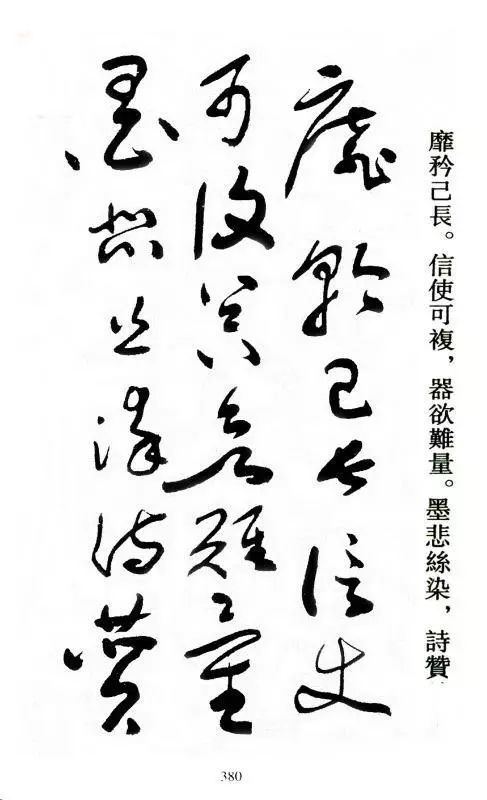 靡矜己長。信使可複，器欲難量。墨悲絲染，詩贊
靡矜己長信使
可複器欲難量
墨悲絲染詩贊
380